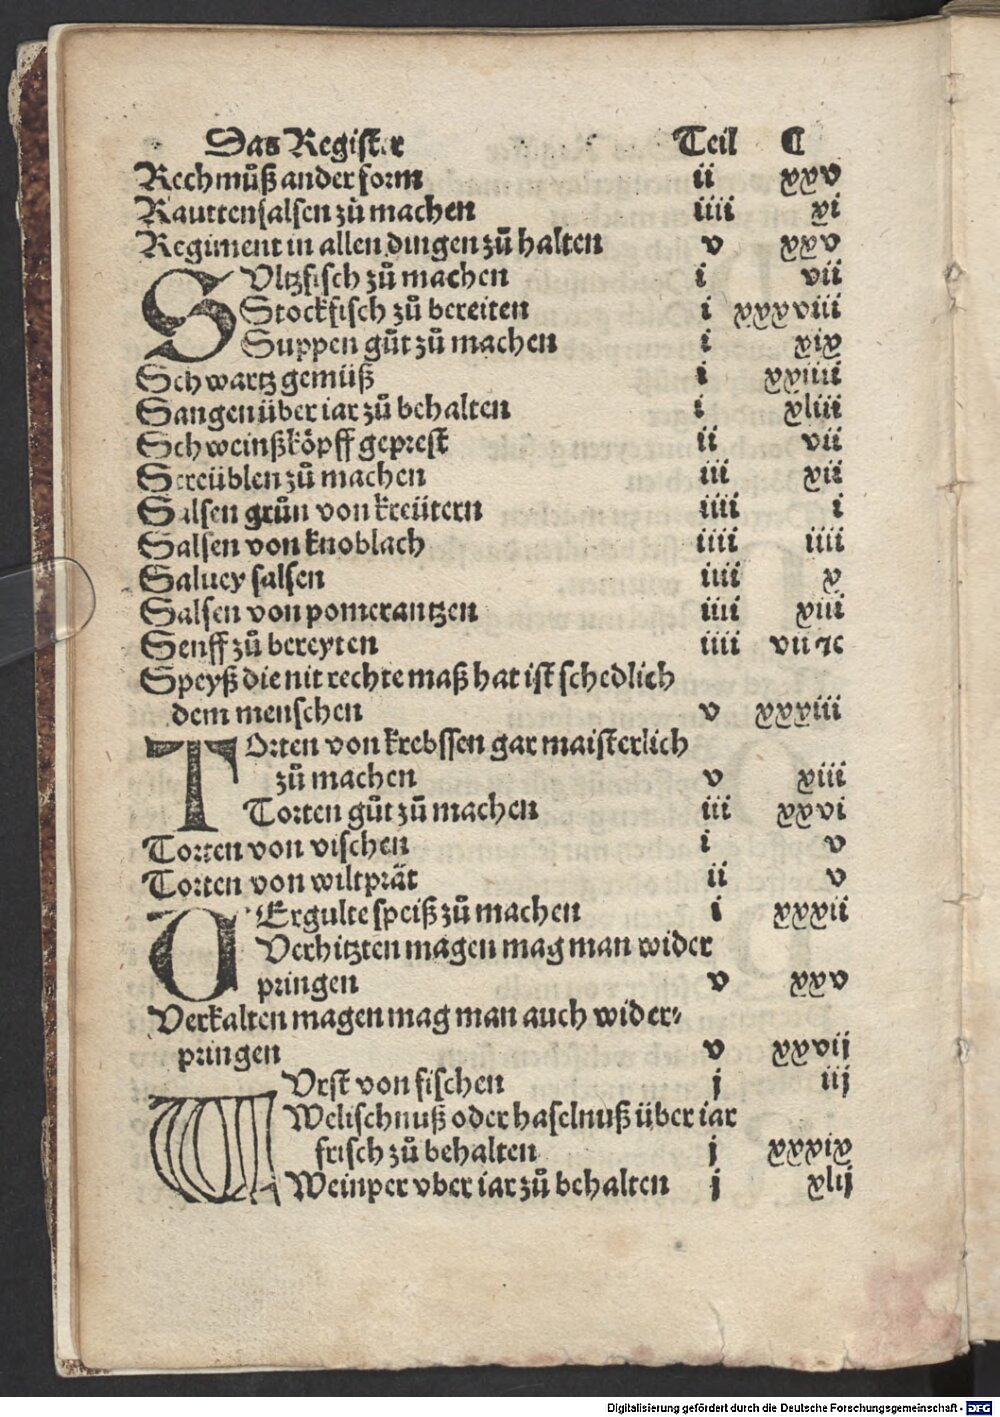 Das Register Teil C
Rechmůß ander form ii xxv
Rauttensalsen zů machen iiii xi
Regiment in allen dingen zů halten v xxv
SUltzfisch zů machen i vii
Stockfisch zů bereiten i xxxxviii
Suppen gůt zů machen i xix
Schwartz gemüß i xxiiii
Sangen über iar zů behalten i xliii
Schweinßköpff geprest ii vii
Streüblen zů machen iii xii
Salsen grůn von kreütern iiii i
Salsen von knoblach iiii iiii
Saluey salsen iiii x
Salsen von pomerantzen iiii xiii
Senff zů bereyten iiii vii ꝛc
Speyß die nit rechte maß hat ist schedlich
dem menschen v xxxiii
TOrten von krebssen gar maisterlich
zů machen v xiii
Torten gůt zů machen iii xxvi
Torten von vischen i v
Torten von wiltprät ii v
VErgulte speiß zů machen i xxxii
Verhitzten magen mag man wider
pringen v xxv
Verkalten magen mag man auch wider⸗
pringen v xxvij
WUrst von fischen j iij
Welischnuß oder haselnuß über iar
frisch zů behalten j xxxix
Weinper vber iar zů behalten j xlij
Digitalisierung gefördert durch die Deutsche Forschungsgemeinschaft - DFG